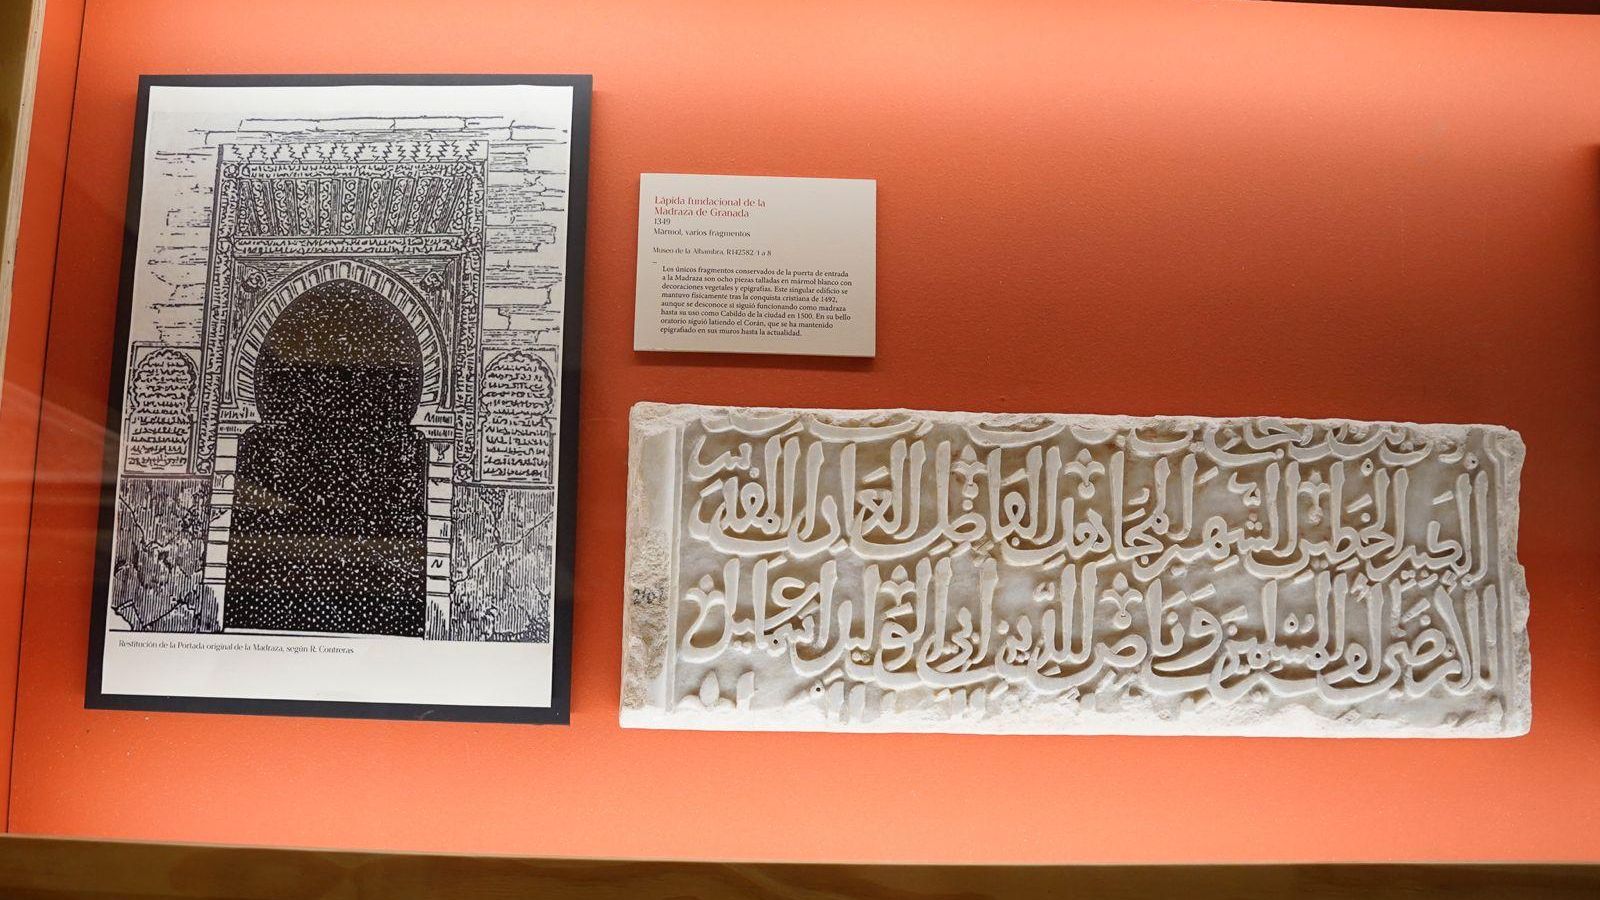 Restitución de la Portada original de la Madraza, según R. Contreras
Lápida fundacional de la
Madraza de Granada
1349
Mármol, varios fragmentos
Museo de la Alhambra, R142582/1 a 8
Los únicos fragmentos conservados de la puerta de entrada
a la Madraza son ocho piezas talladas en mármol blanco con
decoraciones vegetales y epigrafías. Este singular edificio se
mantuvo físicamente tras la conquista cristiana de 1492,
aunque se desconoce si siguió funcionando como madraza
hasta su uso como Cabildo de la ciudad en 1500. En su bello
oratorio siguió latiendo el Corán, que se ha mantenido
epigrafiado en sus muros hasta la actualidad.
الكبير الخطير الشهير المجاهد الفاضل العادل المقدس
الأرضى أمير المسلمين وناصر الدين أبي الوليد إسماعيل